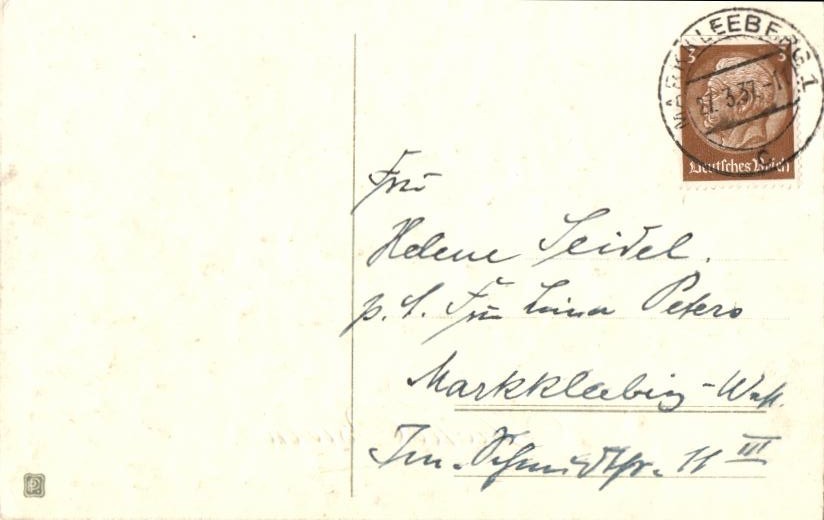 MARKKLEEBERG 1
27.3.37.-11
c
3 3
Deutsches Reich
Frau
Helene Seidel.
p. A. Frau Lina Peters
Markkleeberg-West.
Schmidtstr. 11 III